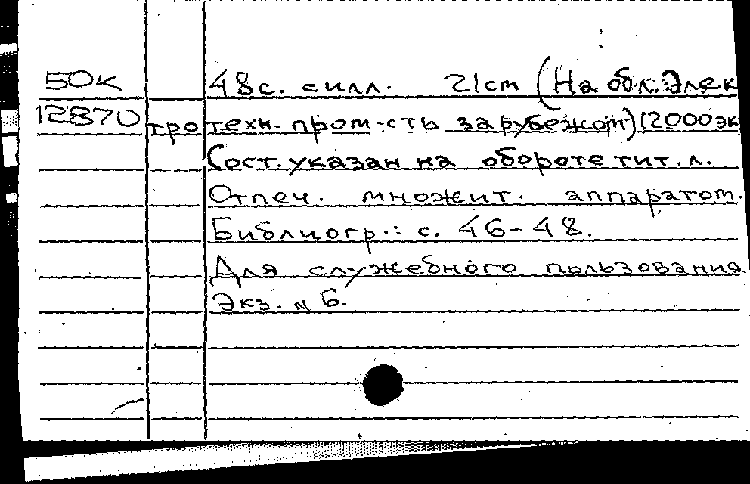 50к 48с. с илл. 21cm (На обл. Элек
12870 тротехн. пром-сть за рубежом) (2000эк
Сост. указан на обороте тит. л.
Отпеч. множит. аппаратом.
Библиогр.: с. 46-48.
Для служебного пользования
Экз. № 6.